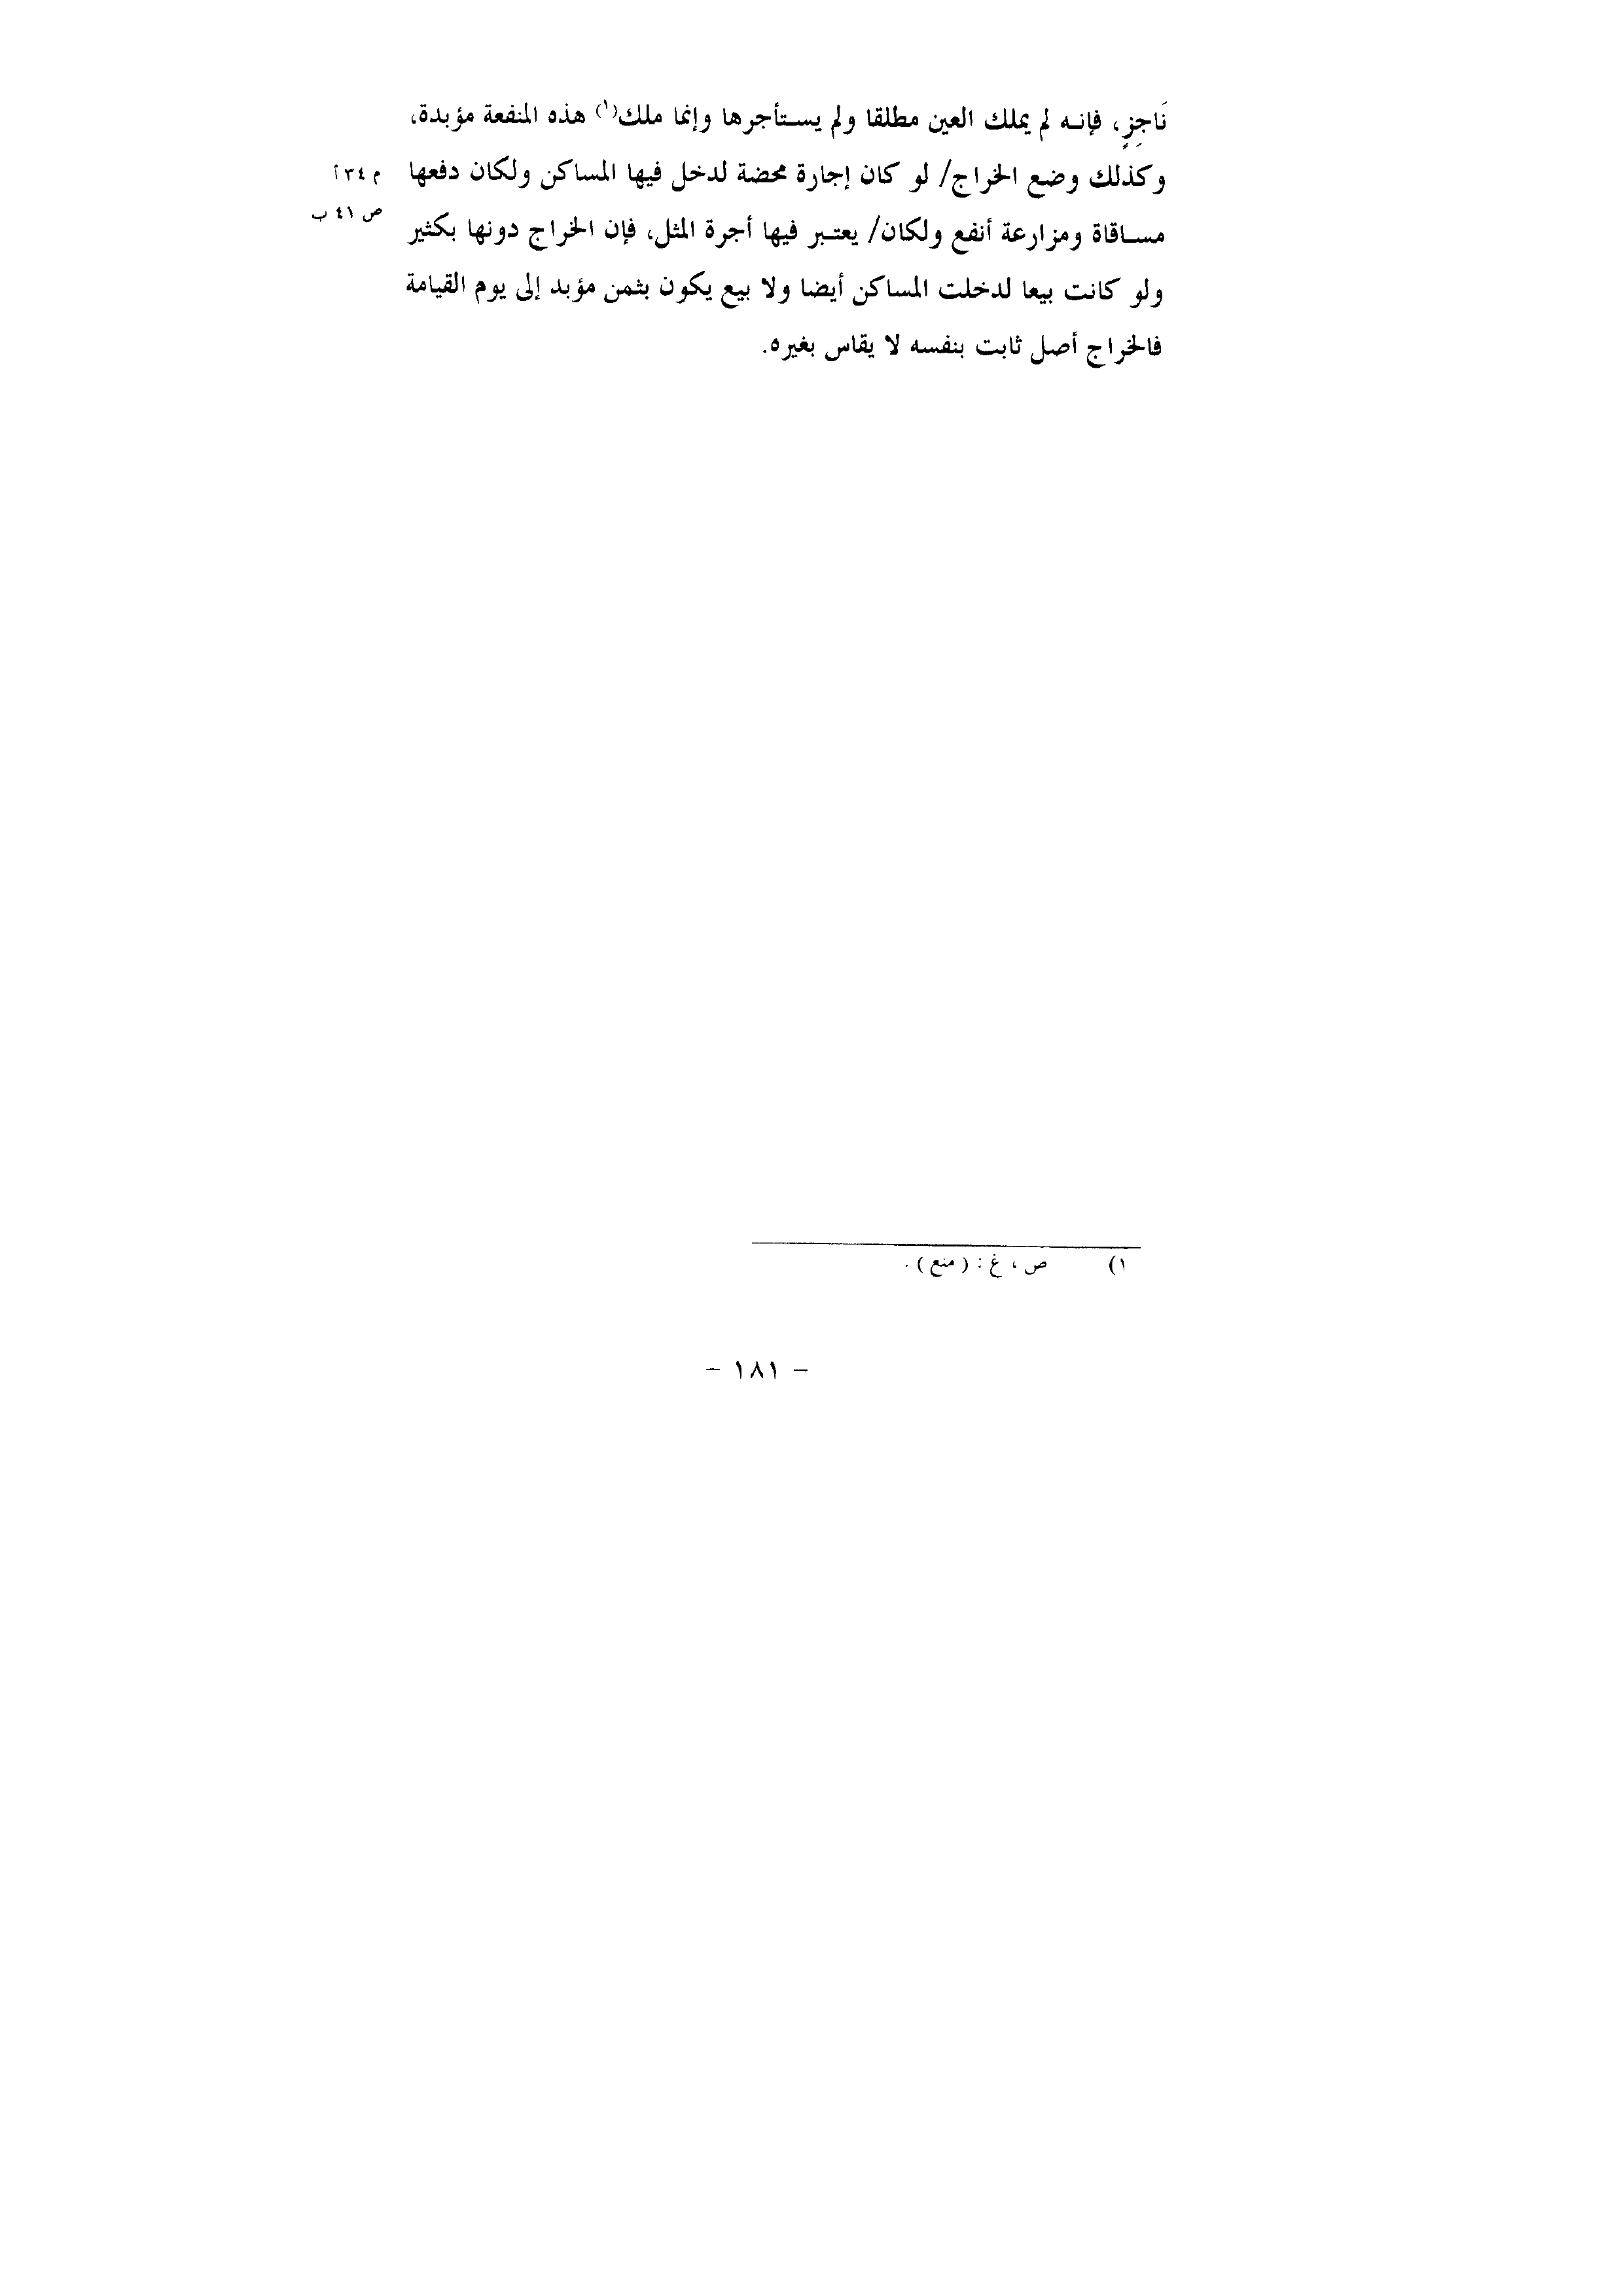 نَاجِزٍ، فإنه لم يملك العين مطلقا ولم يستأجرها وإنما ملك(١) هذه المنفعة مؤبدة،
وكذلك وضع الخراج/ لو كان إجارة محضة لدخل فيها المساكن ولكان دفعها
م ٣٤ أ
مساقاة ومزارعة أنفع ولكان/ يعتبر فيها أجرة المثل، فإن الخراج دونها بكثير
ص ٤١ ب
ولو كانت بيعا لدخلت المساكن أيضا ولا بيع يكون بثمن مؤبد إلى يوم القيامة
فالخراج أصل ثابت بنفسه لا يقاس بغيره.
١) ص ، غ : ( منع ) .
– ١٨١ –